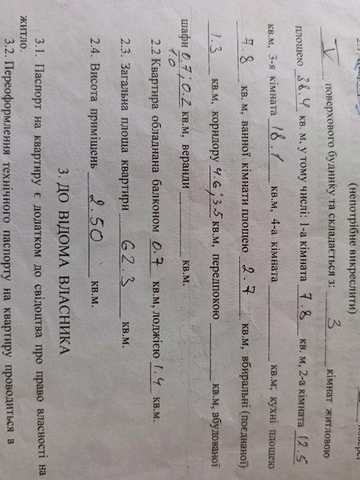 (непотрібне викреслити)
V поверхового будинку та складається з: 3 кімнат житловою
площею 38.4 кв. м. у тому числі: 1-а кімната 7.8 кв. м, 2-а кімната 12.5
кв.м, 3-я кімната 18.1 кв.м, 4-а кімната кв.м, кухні площею
7.8 кв. м, ванної кімнати площею 2.7 кв.м, вбиральні (поєднаної)
1.3 кв.м, коридору 4.6; 3.5 кв.м, передпокою кв.м, вбудованої
шафи 0.7; 0.2 кв.м, веранди кв.м.
1.0
2.2 Квартира обладнана балконом 0.7 кв.м, лоджією 1.4 кв.м.
2.3. Загальна площа квартири 62.3 кв.м.
2.4. Висота приміщень 2.50 кв.м.
3. ДО ВІДОМА ВЛАСНИКА
3.1. Паспорт на квартиру є додатком до свідоцтва про право власності на
житло.
3.2. Переоформлення технічного паспорту на квартиру проводиться в